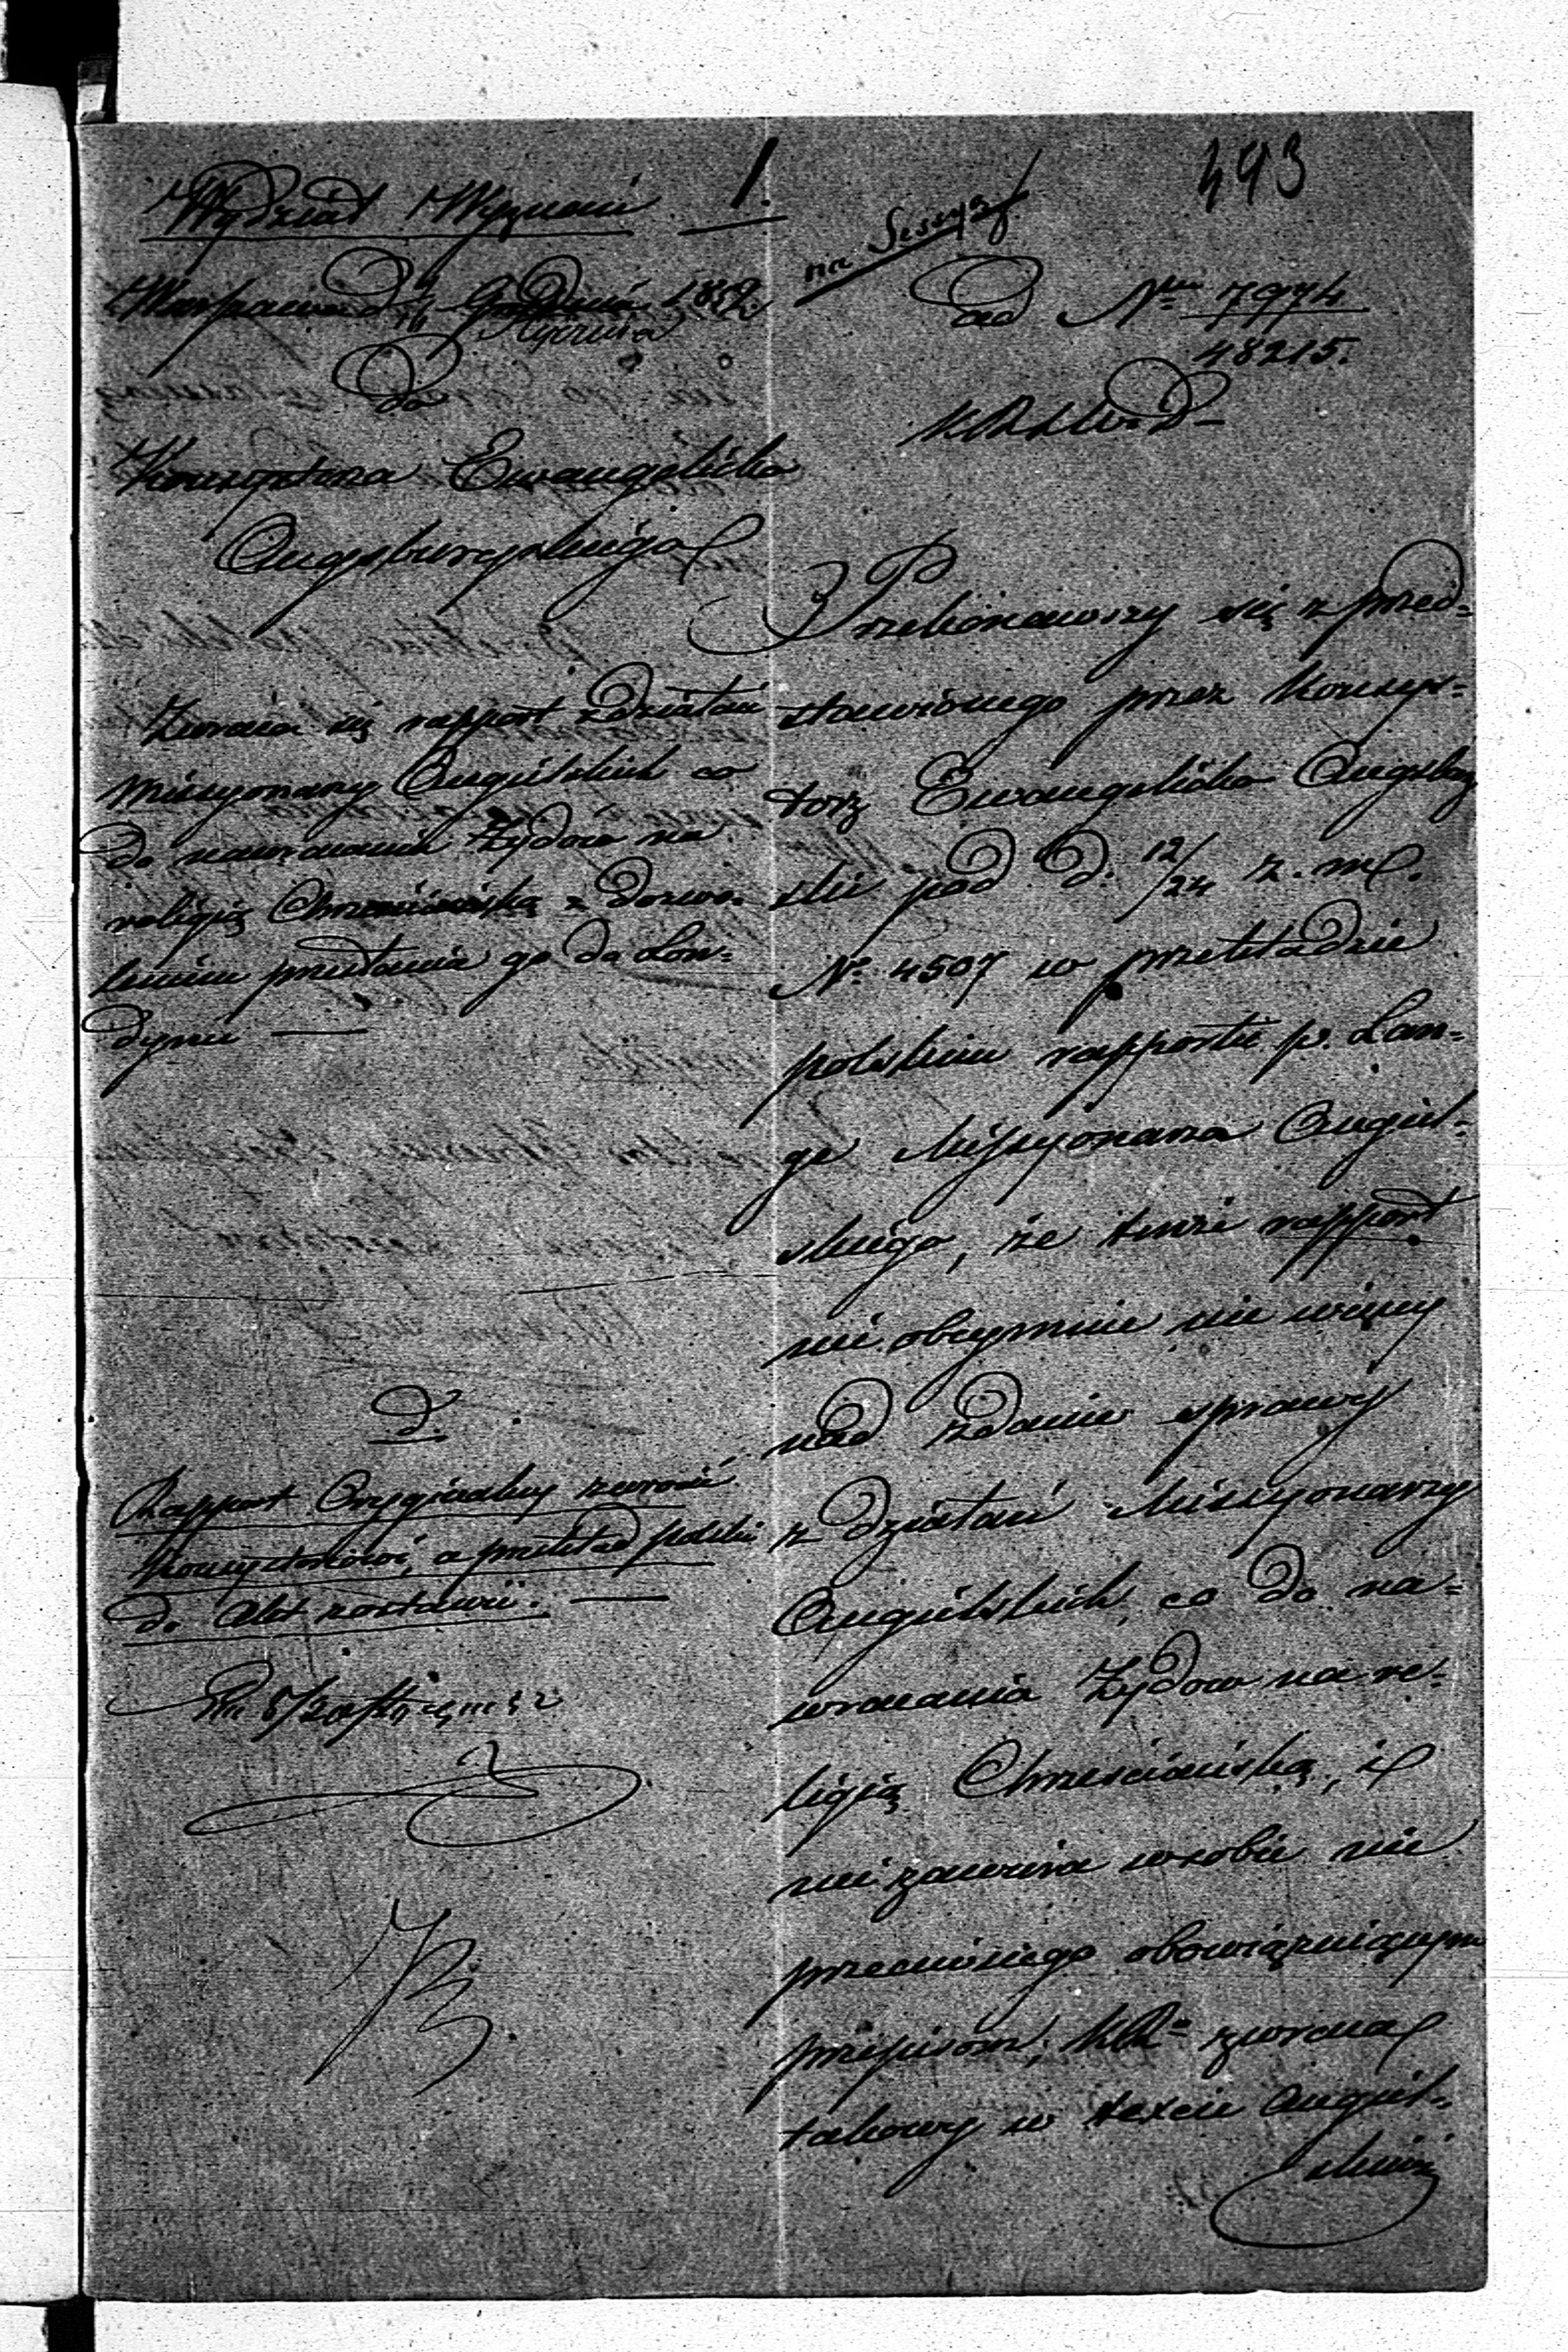 493
Wydział Wyznań 1.
na Sessyą
Warszawa d. Grudnia 185
Stycznia
do
Konsystorza Ewangelicko
Augsburgskiego
Zwraca się rapport z działań
missyonarzy Angielskich co
do nawracania Żydów na
religią Chrześciańską z dozwo-
leniem przesłania go do Lon-
dynu —
d.
Rapport Oryginalny zwrócić
Konsystorzowi, a przekład polski
do Akt zostawić. —
ad Nrum 7974
48215.
Przekonawszy się z przed-
stawionego przez Konsys-
torz Ewangelicko Augsburg
ski pod d. 12/24 z. m.
No 4507 w przekładzie
polskim rapportu p. Lan-
ge Missyonarza Angiel-
skiego, że tenże rapport
nie obejmuie nic więcey
nad zdanie sprawy
z działań Missyonarzy
Angielskich, co do na-
wracania Żydów na re-
ligią Chrześciańską, i
nie zawiera w sobie nic
przeciwnego obowiązuiącym
przepisom, KR zwraca
takowy w texcie angiel-
skim